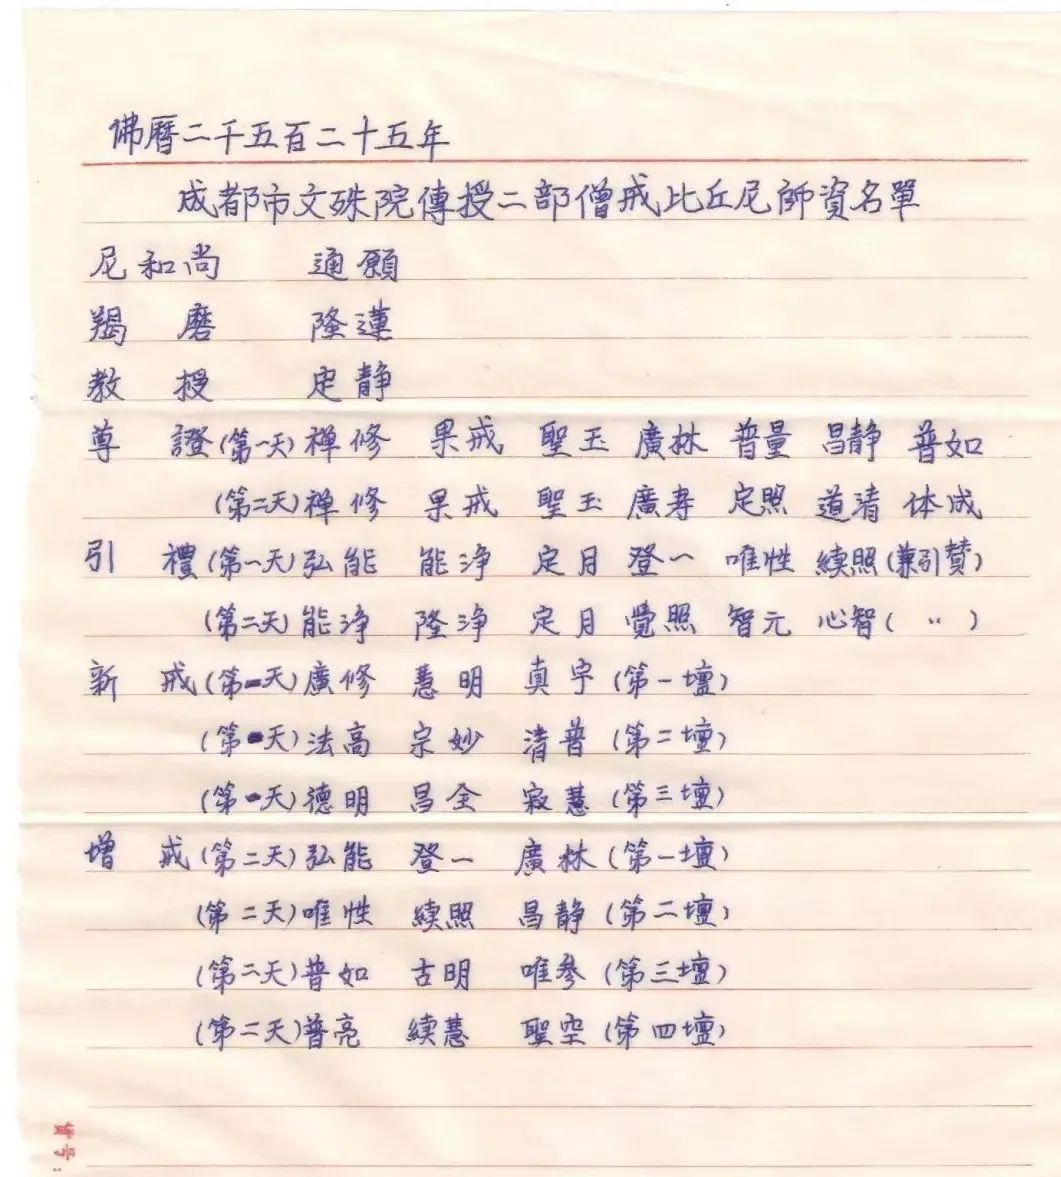 佛曆二千五百二十五年
成都市文殊院傳授二部僧戒比丘尼師資名單
尼和尚 通願
羯磨 隆蓮
教授 定靜
尊證(第一天)禅修 果戒 聖玉 廣林 普量 昌靜 普如
(第二天)禅修 果戒 聖玉 廣寿 定照 道清 体成
引禮(第一天)弘能 能浄 定月 登一 唯性 續照(兼引贊)
(第二天)能浄 隆浄 定月 覺照 智元 心智( 〃 )
新戒(第一天)廣修 慧明 真宇(第一壇)
(第一天)法高 宗妙 清普(第二壇)
(第一天)德明 昌全 寂慧(第三壇)
增戒(第二天)弘能 登一 廣林(第一壇)
(第二天)唯性 續照 昌靜(第二壇)
(第二天)普如 古明 唯參(第三壇)
(第二天)普亮 續慧 聖空(第四壇)